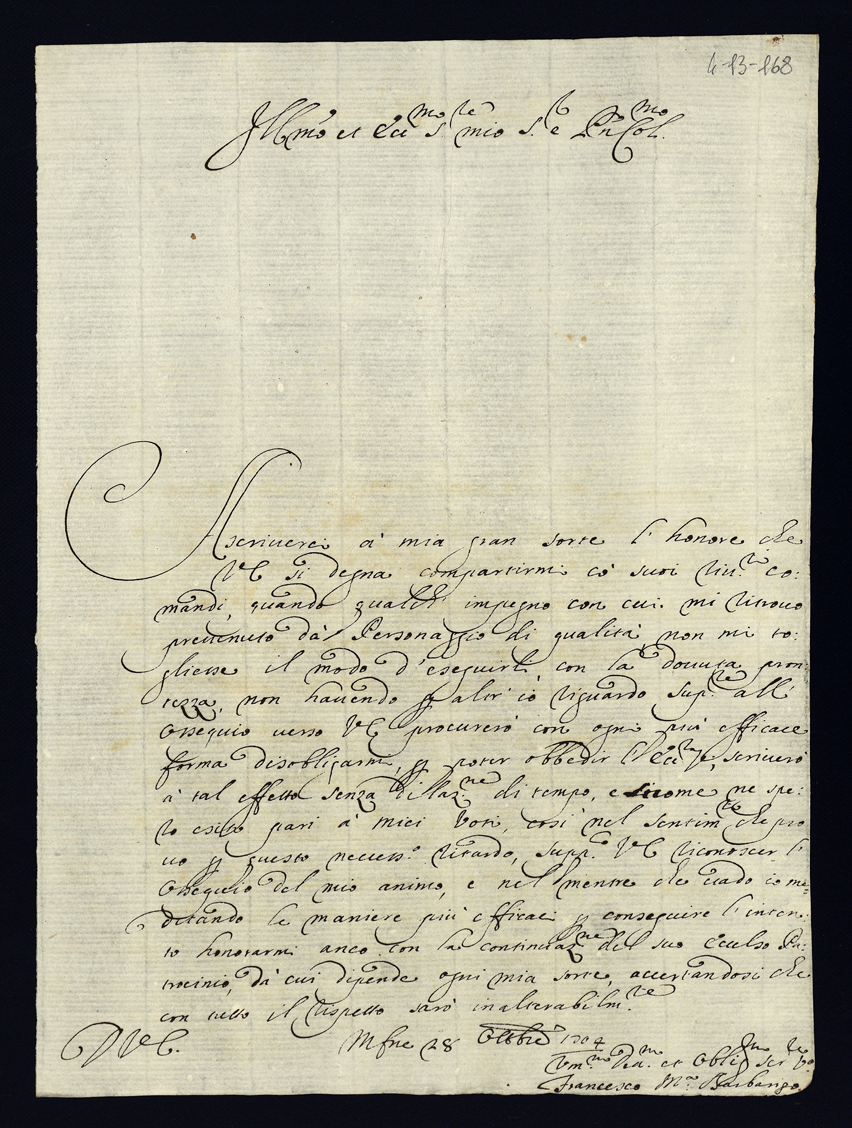 4-13-168
Ill.mo et Ecc.mo S.re mio S.r e P.n Col.mo
Ascriverei à mia gran sorte l'honore che
V E si degna compartirmi cò suoi riv.ti co:
mandi, quando qualch' impegno con cui mi ritrovo
prevenuto dà Personaggio di qualità, non mi to:
gliesse il modo d'eseguirli con la dovuta pron:
tezza, non havendo p altr' io riguardo sup.re all'
Ossequio verso V E procurerò con ogni più efficace
forma disobligarmi, p poter obbedir l'Ecc.za, scriverò
à tal effetto senza dillaz.ne di tempo, e sicome ne spe:
ro esito pari à miei voti, così nel sentim.to che pro
vo p questo necess.o ritardo, supp.o V E riconoscer l'
Ossequio del mio animo, e nel mentre che vado io me:
ditando le maniere più efficaci p conseguire l'inten:
to honorarmi anco con la continuaz.ne del suo Eccelso Pa:
trocinio, dà cui dipende ogni mia sorte, accertandosi che
con tutto il rispetto sarò inalterabilm.te
D V E.
Mfne 28 Ottbre 1704
Um.mo Dev.mo et Oblig.mo Ser.re V.o
Francesco M.a Barbarigo